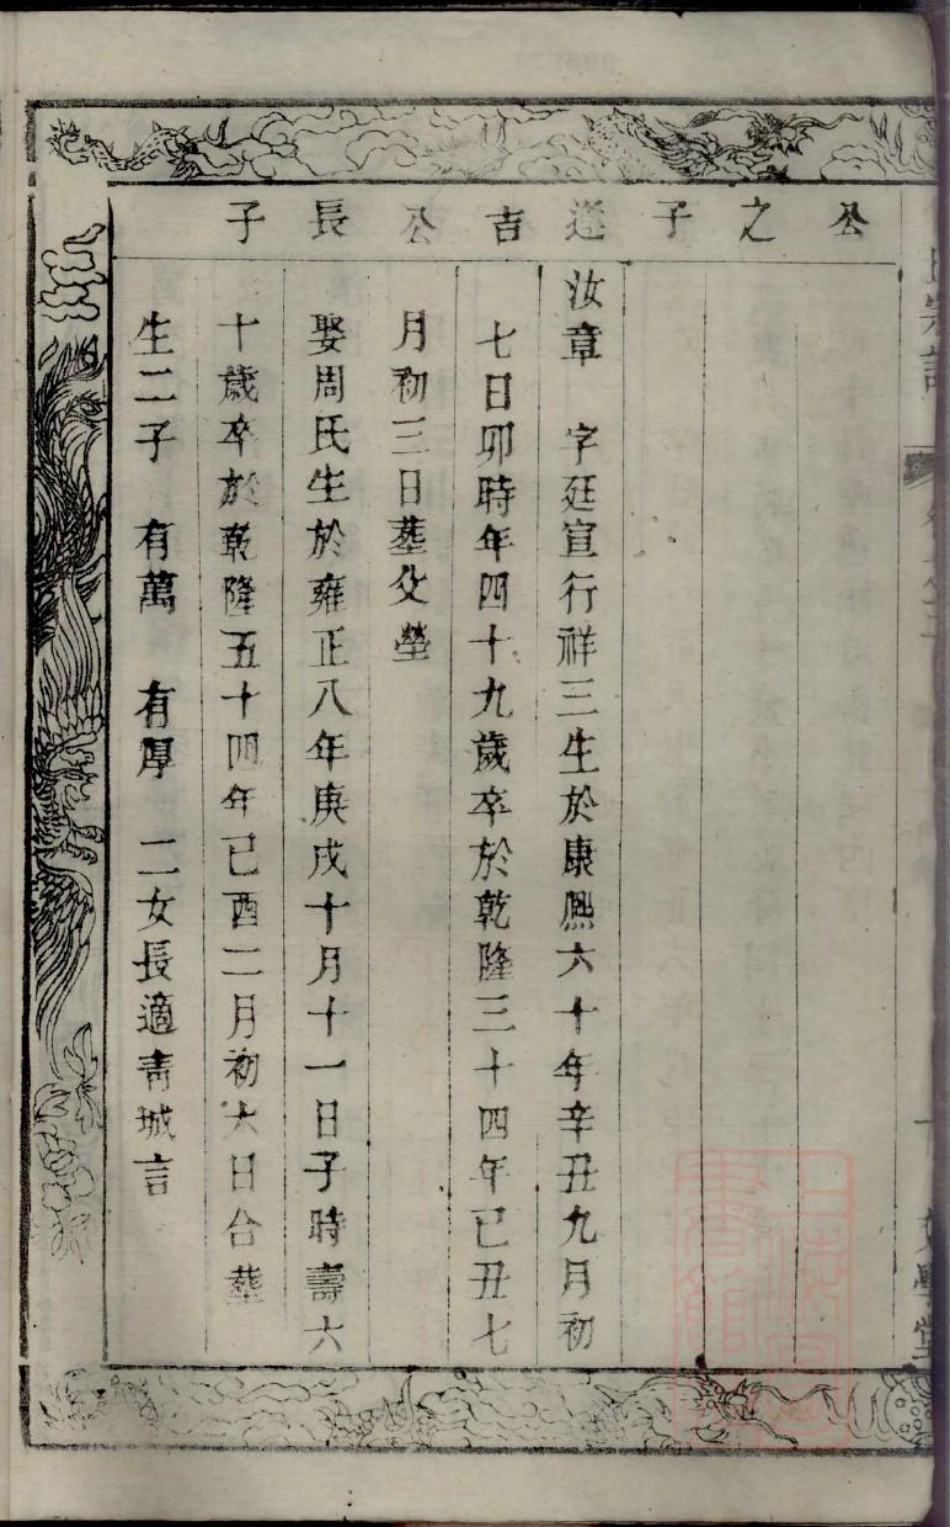 公之子
逵吉公長子
汝章 字廷宣行祥三生於康熙六十年辛丑九月初
七日卯時年四十九歲卒於乾隆三十四年已丑七
月初三日塟父塋
娶周氏生於雍正八年庚戌十月十一日子時壽六
十歲卒於乾隆五十四年已酉二月初六日合塟
生二子 有萬 有厚 二女長適青城言